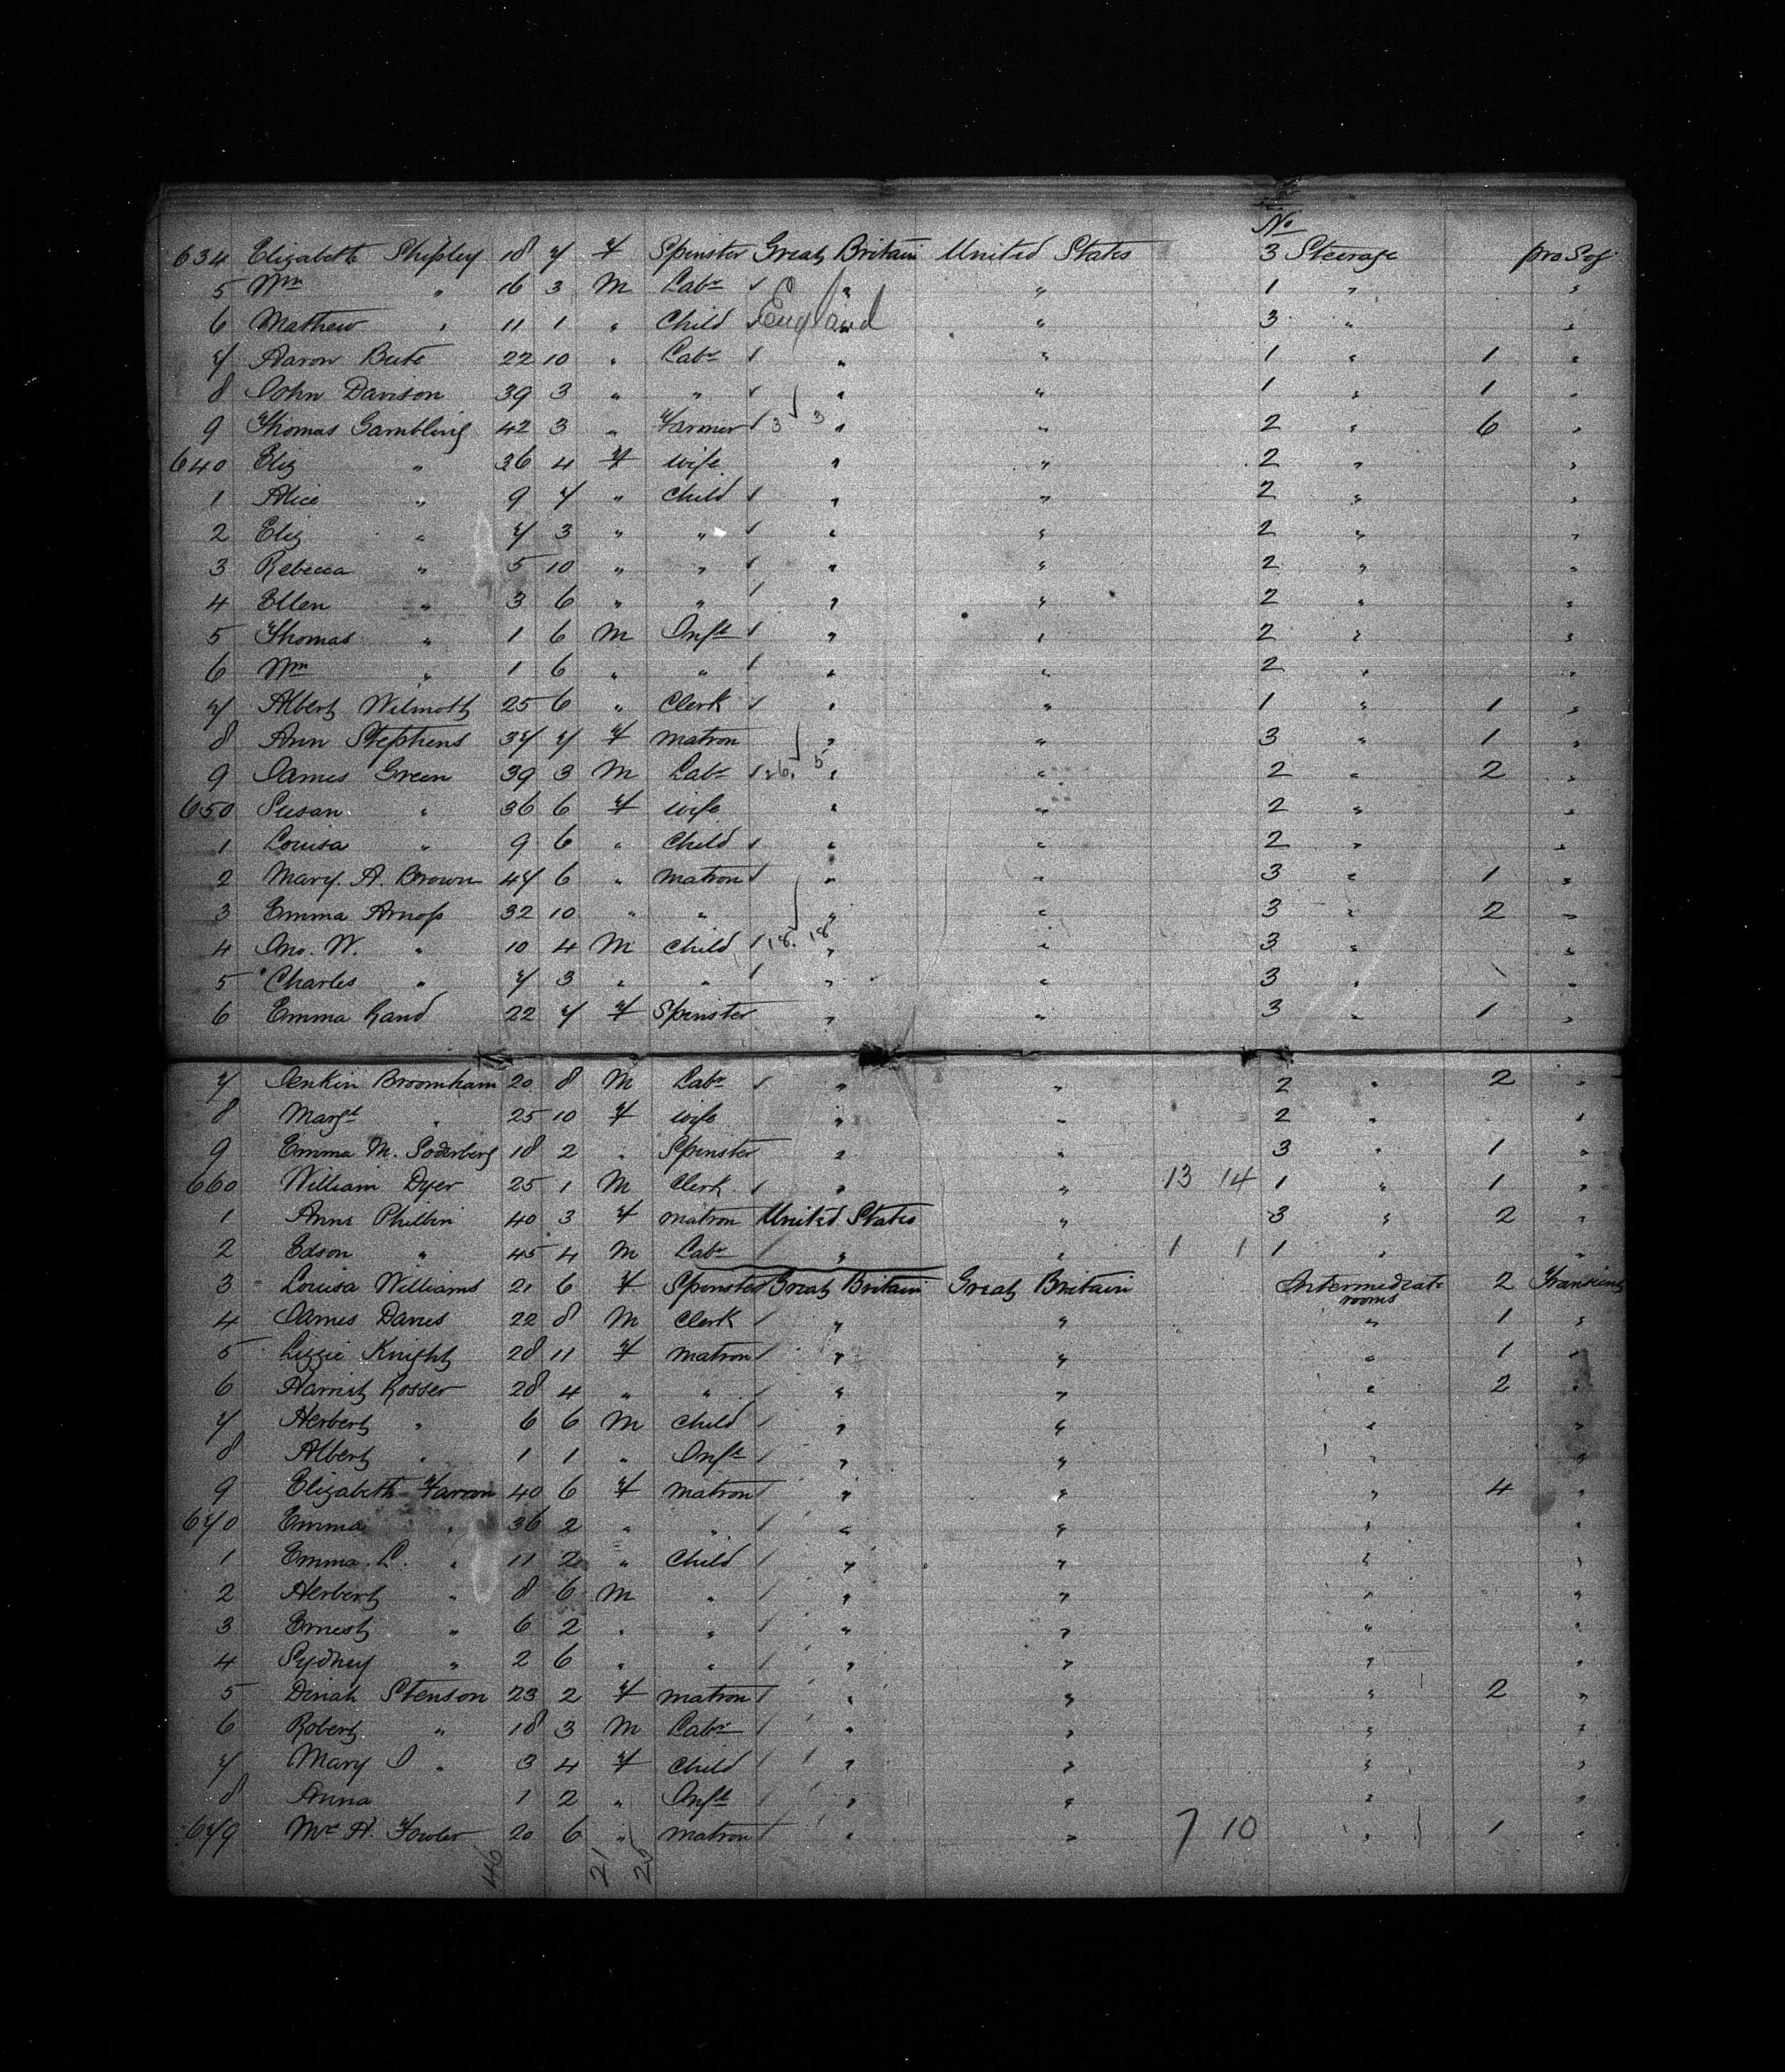 No
634 Elizabeth Shipley 18 7 F Spinster Great Britain United States 3 Steerage pro Soj
5 Wm " 16 3 M Labr " " 1 " "
6 Mathew " 11 1 " Child England " " 3 " "
7 Aaron Bute 22 10 " Labr " " 1 " 1 "
8 John Davison 39 3 " " " " 1 " 1 "
9 Thomas Gambling 42 3 " Farmer 3 3 " " 2 " 6 "
640 Eliz " 36 4 F wife " " 2 " "
1 Alice " 9 7 " Child " " 2 " "
2 Eliz " 7 3 " " " " 2 " "
3 Rebecca " 5 10 " " " " 2 " "
4 Ellen " 3 6 " " " " 2 " "
5 Thomas " 1 6 M Inft " " 2 " "
6 Wm " 1 6 " " " " 2 " "
7 Albert Wilmott 25 6 " Clerk " " 1 " 1 "
8 Ann Stephens 37 7 F matron " " 3 " 1 "
9 James Green 39 3 M Labr 26 5 " " 2 " 2 "
650 Susan " 36 6 F wife " " 2 " "
1 Louisa " 9 6 " Child " " 2 " "
2 Mary. A. Brown 47 6 " matron " " 3 " 1 "
3 Emma Arnop 32 10 " " " " 3 " 2 "
4 Jno. W. " 10 4 M Child 18 18 " " 3 " "
5 Charles " 7 3 " " " " 3 " "
6 Emma Rand 22 7 F Spinster " " 3 " 1 "
7 Jenkin Broomham 20 8 M Labr " " 2 " 2 "
8 Margt " 25 10 F wife " " 2 " "
9 Emma M. Soderberg 18 2 " Spinster " " 3 " 1 "
660 William Dyer 25 1 M Clerk " " 13 14 1 " 1 "
1 Anne Philbin 40 3 F matron United States " 3 " 2 "
2 Edson " 45 4 M Labr " " 1 1 1 " "
3 Louisa Williams 21 6 F Spinster Great Britain Great Britain Intermediate rooms 2 Transient
4 James Davies 22 8 M Clerk " " " 1 "
5 Lizzie Knight 28 11 F matron " " " 1 "
6 Harriet Rosser 28 4 " " " " " 2 "
7 Herbert " 6 6 M Child " " " "
8 Albert " 1 1 " Inft " " " "
9 Elizabeth 40 6 F matron " " " 4 "
670 Emma " 36 2 " " " " " "
1 Emma. L. " 11 2 " Child " " " "
2 Herbert " 8 6 M " " " " "
3 Ernest " 6 2 " " " " " "
4 Sydney " 2 6 " " " " " "
5 Dinah Stenson 23 2 F matron " " " 2 "
6 Robert " 18 3 M Labr " " " "
7 Mary J " 3 4 F Child " " " "
8 Anna 1 2 " Inft " " " "
679 Mrs A. Fowler 20 6 " matron " " 7 10 " 1 "
46 21 25